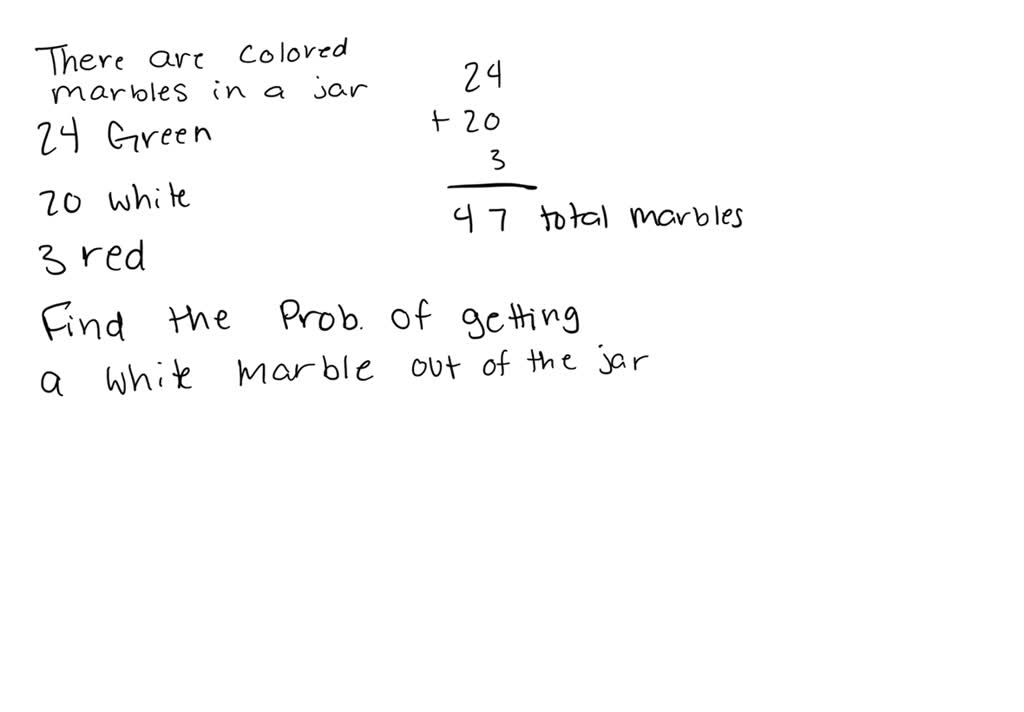 There are colored
marbles in a jar
24 Green
20 white
3 red
24
+ 20
3
47 total marbles
Find the Prob. of getting
a white marble out of the jar